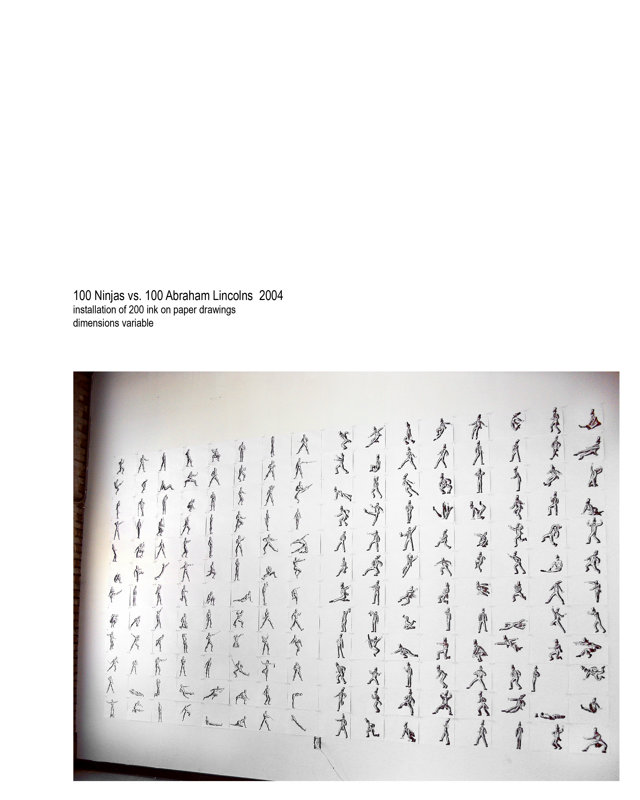 100 Ninjas vs. 100 Abraham Lincolns 2004
installation of 200 ink on paper drawings
dimensions variable